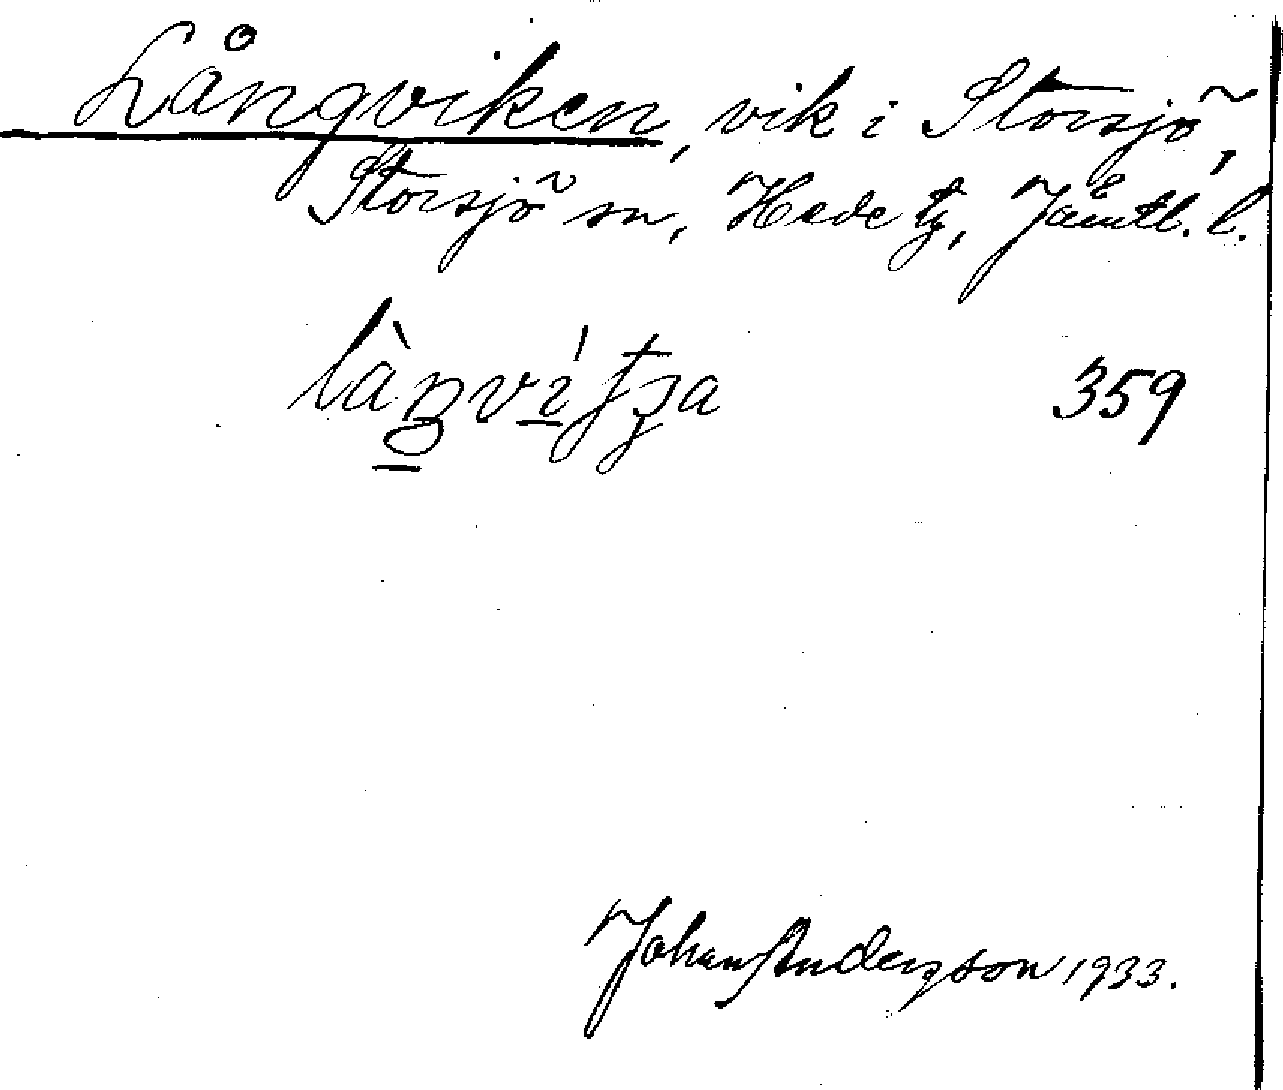 Långviken, vik i Storsjö,
Storsjö sn, Hede tg, Jämtl. l.
359
Johan Anderzson 1933.